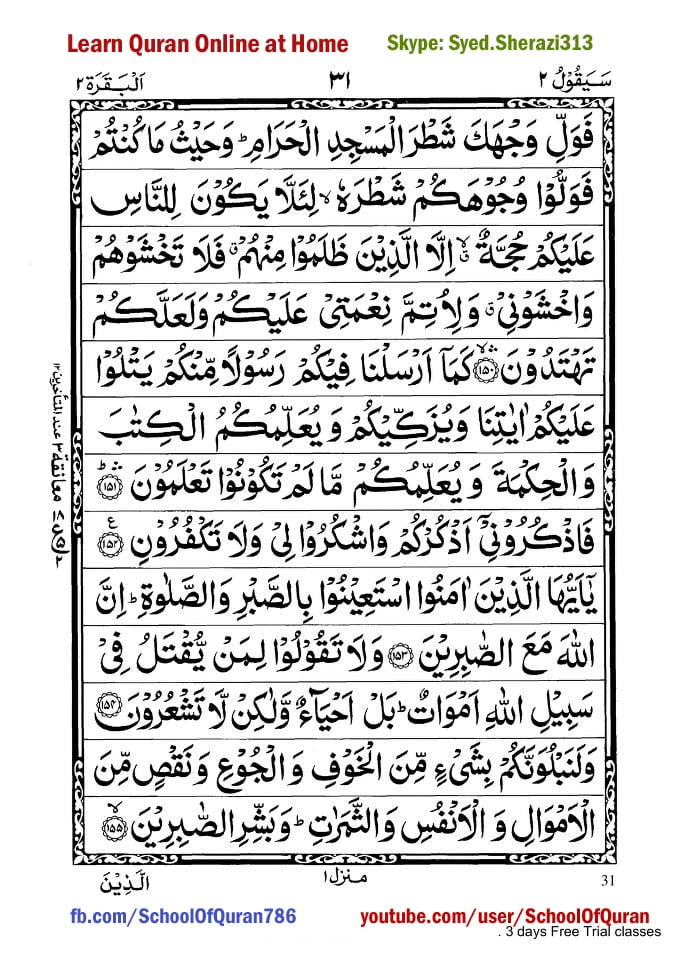 Learn Quran Online at Home Skype: Syed.Sherazi313
سَيَقُوْلُ ٢ ٣١ اَلْبَقَرَة ٢
فَوَلِّ وَجْهَكَ شَطْرَ الْمَسْجِدِ الْحَرَامِ ؕ وَحَيْثُ مَا كُنْتُمْ
فَوَلُّوْا وُجُوْهَكُمْ شَطْرَهٗ ۙ لِئَلَّا يَكُوْنَ لِلنَّاسِ
عَلَيْكُمْ حُجَّةٌ ۙۗ اِلَّا الَّذِيْنَ ظَلَمُوْا مِنْهُمْ ۗ فَلَا تَخْشَوْهُمْ
وَاخْشَوْنِيْ ۗ وَلِاُتِمَّ نِعْمَتِيْ عَلَيْكُمْ وَلَعَلَّكُمْ
تَهْتَدُوْنَ ۙۛ ﴿١٥٠﴾ كَمَاۤ اَرْسَلْنَا فِيْكُمْ رَسُوْلًا مِّنْكُمْ يَتْلُوْا
عَلَيْكُمْ اٰيٰتِنَا وَيُزَكِّيْكُمْ وَيُعَلِّمُكُمُ الْكِتٰبَ
وَالْحِكْمَةَ وَيُعَلِّمُكُمْ مَّا لَمْ تَكُوْنُوْا تَعْلَمُوْنَ ؕۛ ﴿١٥١﴾
فَاذْكُرُوْنِيْۤ اَذْكُرْكُمْ وَاشْكُرُوْا لِيْ وَلَا تَكْفُرُوْنِ ﴿١٥٢﴾ ع
يٰۤاَيُّهَا الَّذِيْنَ اٰمَنُوا اسْتَعِيْنُوْا بِالصَّبْرِ وَالصَّلٰوةِ ؕ اِنَّ
اللّٰهَ مَعَ الصّٰبِرِيْنَ ﴿١٥٣﴾ وَلَا تَقُوْلُوْا لِمَنْ يُّقْتَلُ فِيْ
سَبِيْلِ اللّٰهِ اَمْوَاتٌ ؕ بَلْ اَحْيَآءٌ وَّلٰكِنْ لَّا تَشْعُرُوْنَ ﴿١٥٤﴾
وَلَنَبْلُوَنَّكُمْ بِشَيْءٍ مِّنَ الْخَوْفِ وَالْجُوْعِ وَنَقْصٍ مِّنَ
الْاَمْوَالِ وَالْاَنْفُسِ وَالثَّمَرٰتِ ؕ وَبَشِّرِ الصّٰبِرِيْنَ ۙ ﴿١٥٥﴾
معانقة ٣ عند المتأخرين ١٢
31 منزل ١ الَّذِيْنَ
fb.com/SchoolOfQuran786 youtube.com/user/SchoolOfQuran
. 3 days Free Trial classes